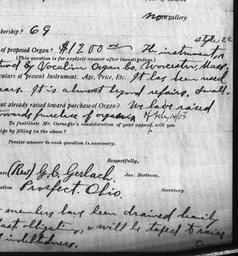 No gallery
mbership? 69
style 22
of proposed Organ? $1200.00 The instrument
(This question is for explicit answer after investigation.)
by Vocalion Organ Co. Worcester, Mass.
culars of present Instrument. Age, Price, Etc. It has been used
ears. It is almost beyond repairs. Small.
nt already raised toward purchase of Organ? We have raised
towards purchase of organ
To facilitate Mr. Carnegie's consideration of your appeal, will you
ige by filling in the above?
Precise answer to each question is necessary.
Respectfully,
Rev. G. C. Gerlach. Jas. Bertram,
Prospect, Ohio. Secretary
members have been drained heavily
past obligations, & will be taxed to raise
indebtedness.